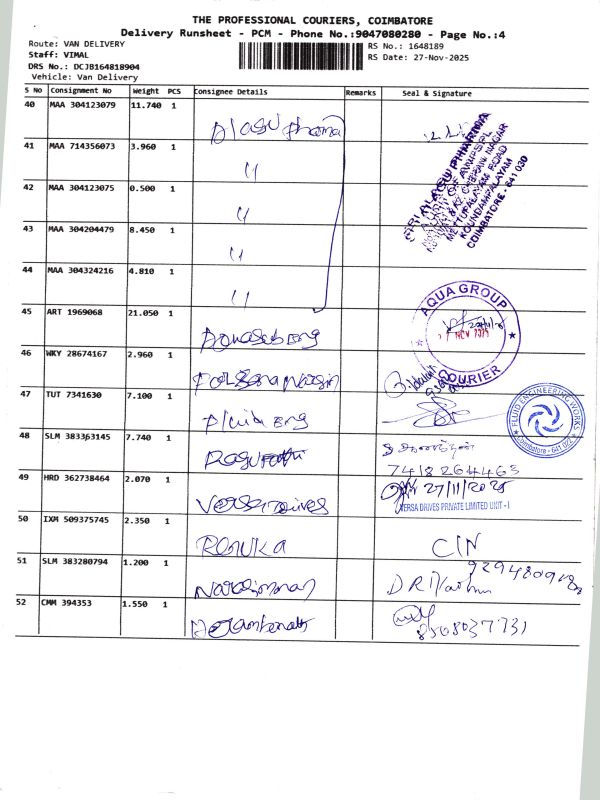 THE PROFESSIONAL COURIERS, COIMBATORE
Delivery Runsheet - PCM - Phone No.:9047080280 - Page No.:4
Route: VAN DELIVERY
RS No.: 1648189
Staff: VIMAL
RS Date: 27-Nov-2025
DRS No.: DCJB164818904
Vehicle: Van Delivery
S No Consignment No Weight PCS Consignee Details Remarks Seal & Signature
40 MAA 304123079 11.740 1 Alagu Pharma
41 MAA 714356073 3.960 1 "
42 MAA 304123075 0.500 1 "
43 MAA 304204479 8.450 1 "
44 MAA 304324216 4.810 1 "
SRI ALAGU PHARMA
METTUPALAYAM ROAD
KOUNDAMPALAYAM
COIMBATORE - 641 030
45 ART 1969068 21.050 1
AQUA GROUP
COURIER
46 WKY 28674167 2.960 1
47 TUT 7341630 7.100 1 Fluid Eng
FLUID ENGINEERING WORKS
Coimbatore - 641
48 SLM 383363145 7.740 1
7418264463
49 HRD 362738464 2.070 1 Versa Drives
27/11/2025
VERSA DRIVES PRIVATE LIMITED UNIT - I
50 IXM 509375745 2.350 1 RENUKA
51 SLM 383280794 1.200 1 Narasimman
52 CMM 394353 1.550 1
8508037731